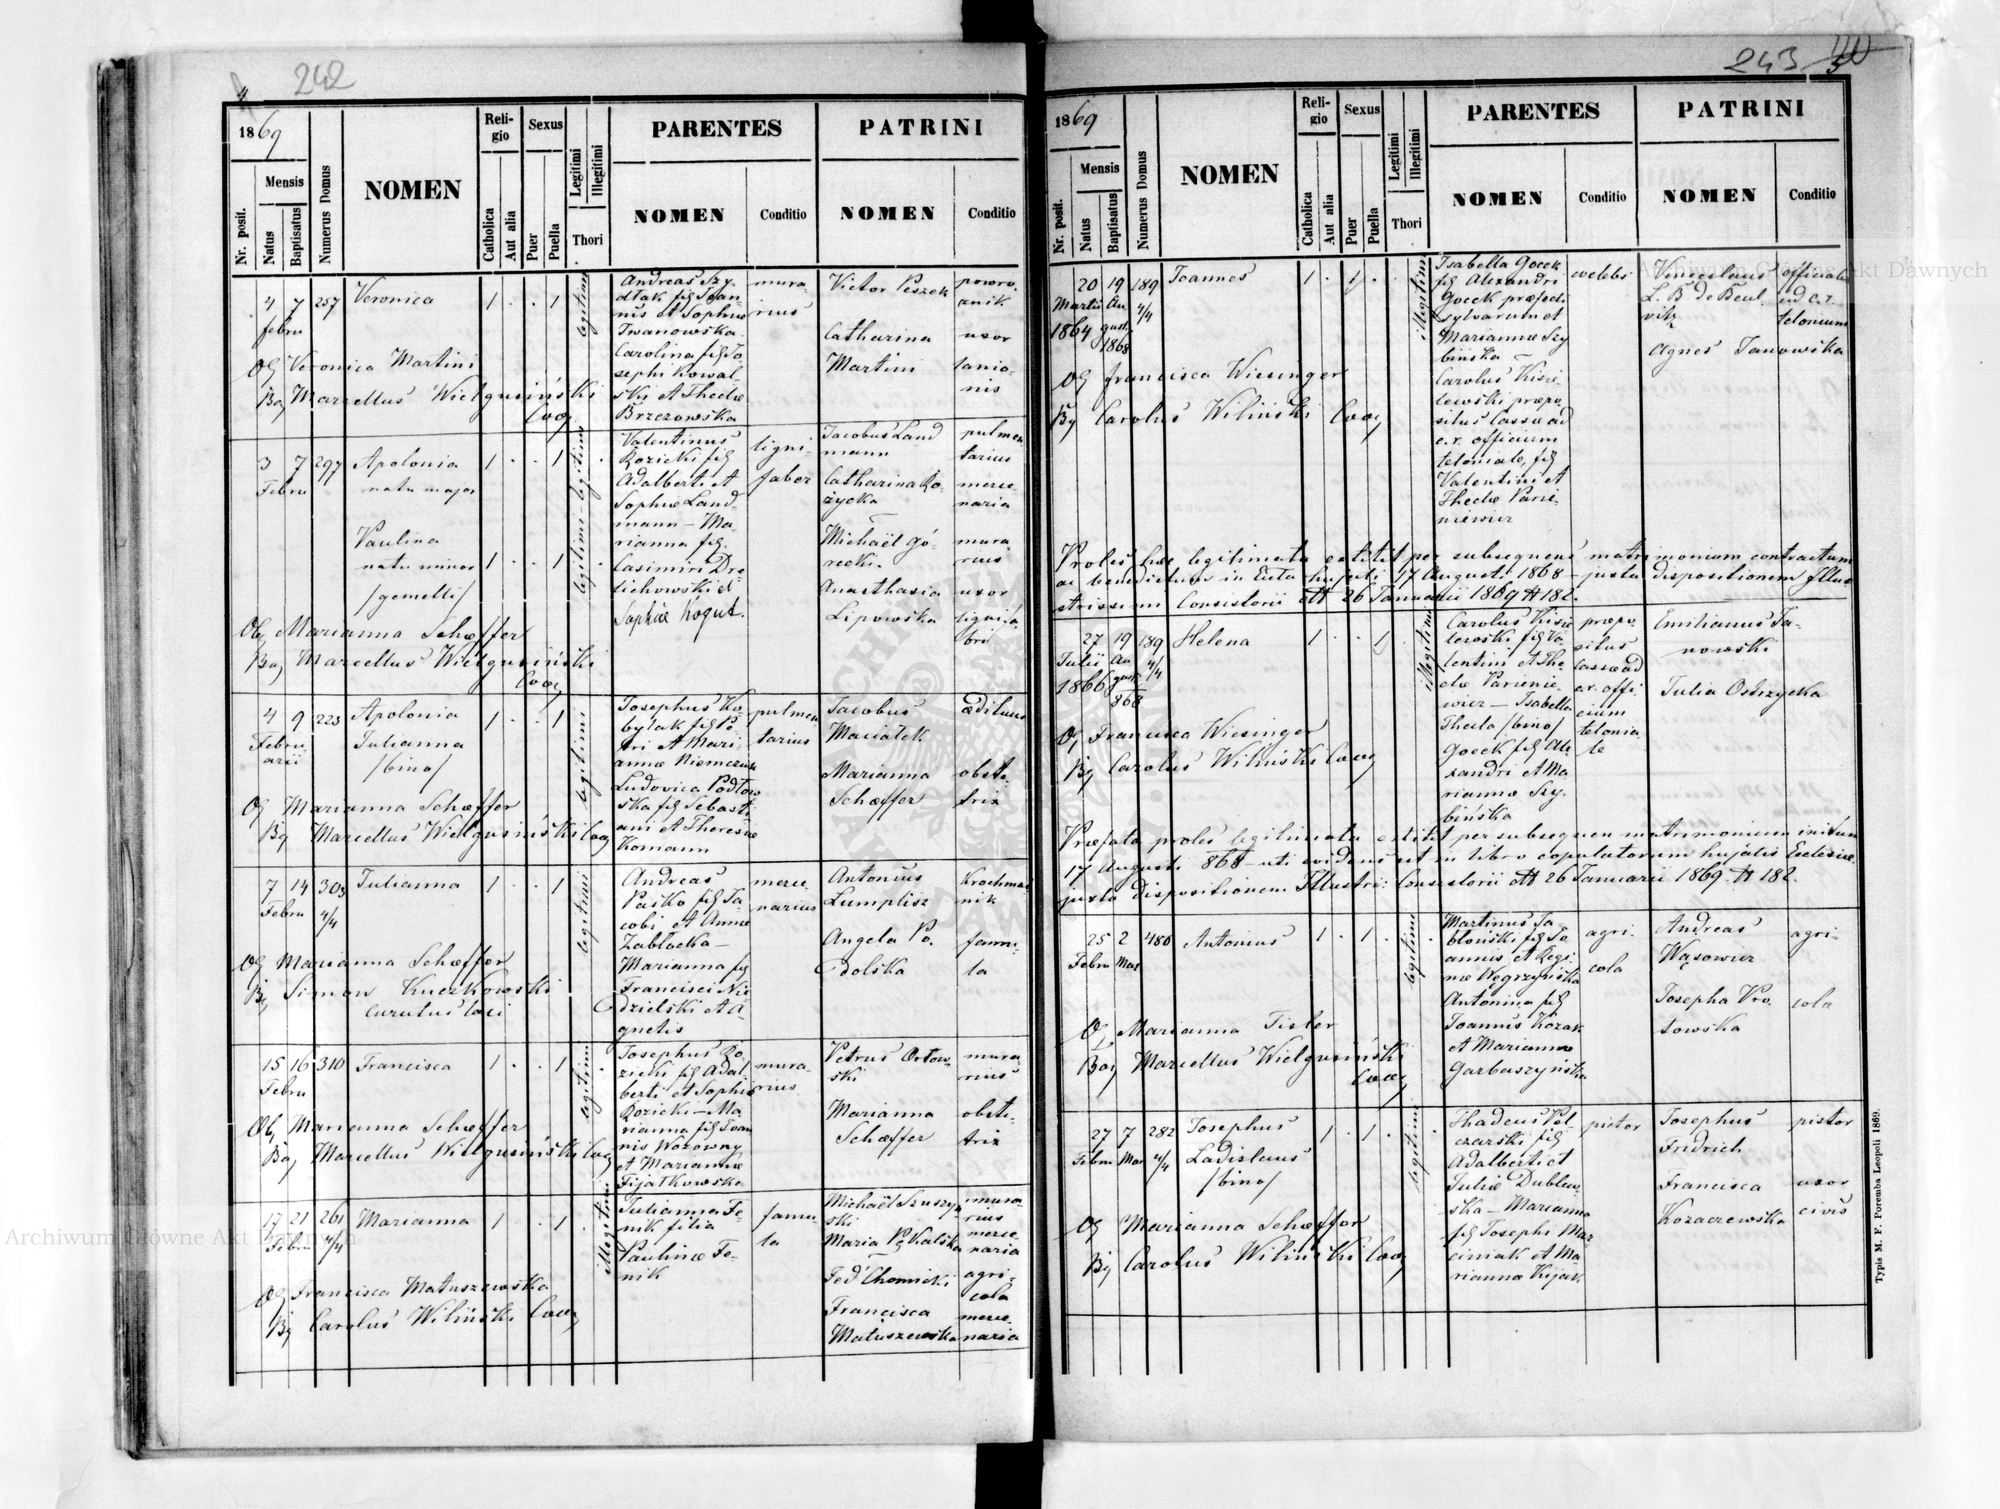 4
242
1869
Nr. posit.
Mensis
Natus
Baptisatus
Numerus Domus
NOMEN
Reli-
gio
Catholica
Aut alia
Sexus
Puer
Puella
Legitimi
Illegitimi
Thori
PARENTES
NOMEN
Conditio
PATRINI
NOMEN
Conditio
4 7 257 Veronica 1 . . 1
Febru
legitimi
Andreas Szy-
dłak fil Joan-
nis et Sophiae
Iwanowska
Carolina fil Jo-
sephi Kowal-
ski et Theclae
Brzezowska
mura
rius
Victor Peszek
Catharina
Martini
powro-
znik
uxor
lanio-
nis
Ob Veronica Martini
Bq Marcellus Wielgusiński
Coop
3 7 297 Apolonia 1 . . 1
Febru
natu major
Paulina
natu minor 1 . . 1
/gemelli/
legitimi - legitimi
Valentinus
Rozicki fil
Adalberti et
Sophiae Land-
mann - Ma-
rianna fil
Casimiri Dre-
lichowski et
Sophiae Kogut.
ligni-
faber
Jacobus Land
mann
Catharina Ro-
życka
Michaël Gó-
recki.
Anasthasia
Lipowska
pulmen
tarius
merce
naria
mura
rius
uxor
lignifa
bri
Ob Marianna Schæffer
Bq Marcellus Wielgusiński
Coop
4 9 223 Apolonia 1 . . 1
Febru
arii
Julianna
/bino/
legitimi
Josephus Ko-
bylak fil Pe-
tri et Mari-
annae Niemczura
Ludovica Podłow
ska fil Sebasti
ani et Theresiae
Komann
pulmen
tarius
Jacobus
Maciałek
Marianna
Schæffer
ædituus
obste-
trix
Ob Marianna Schæffer
Bq Marcellus Wielgusiński Coop
7 14 303 Julianna 1 . . 1
Febru 4/4
legitimi
Andreas
Paśko fil Ja-
cobi et Annae
Zabłocka -
Marianna fil
Francisci Nie
dzielski et A-
gnetis
merce
narius
Antonius
Lumplisz
Angela Po-
dolska
Krochmal
nik
famu-
la
Ob Marianna Schæffer
Bq Simon Kuczkowski
Curatus loci
15 16 310 Francisca 1 . . 1 .
Febru
legitimi
Josephus Ro-
zicki fil Adal
berti et Sophiae
Rozicki - Ma
rianna fil Joan
nis Wozowny
et Mariannae
Fijałkowska
mura-
rius
Petrus Orłow-
ski
Marianna
Schæffer
mura
rius
obste-
trix
Ob Marianna Schæffer
Bq Marcellus Wielgusiński Coop
17 21 261 Marianna 1 . . 1 .
Febru 4/4
illegitimi
Julianna Fe-
nik filia
Paulinae Fe-
nik
famu
la
Michaël Szuszyn
ski
Maria Pękalska
Fed Chomicki
Francisca
Matuszewska
mura-
rius
merce
naria
agri-
cola
merce
naria
Ob Francisca Matuszewska
Bq Carolus Wiliński Coop
243
5
1869
Nr. posit.
Mensis
Natus
Baptisatus
Numerus Domus
NOMEN
Reli-
gio
Catholica
Aut alia
Sexus
Puer
Puella
Legitimi
Illegitimi
Thori
PARENTES
NOMEN
Conditio
PATRINI
NOMEN
Conditio
20 19 189 Joannes 1 . 1 .
Martii Au 4/4
1864 gusti
1868
illegitimi
Isabella Goeck
fil Alexandri
Goeck præfecti
sylvarum et
Mariannae Szy
bińska -
Carolus Kisie-
lewski præpo-
situs cassæ ad
c.r. officium
teloniale, fil
Valentini et
Theclae Parie-
niewicz
coelebs
Venceslaus
L. B. de Beul-
vitz
Agnes Janowska
officialis
ad c.r.
telonium
Ob Francisca Wiesinger
Bq Carolus Wiliński Coop
Proles hæc legitimata extitit per subsequens matrimonium contractum
ac benedictum in Ecta hujati 17 Augusti 1868 - juxta dispositionem Illu-
strissimi Consistorii dtt 26 Januarii 1869 N 182.
27 19 189 Helena 1 . . 1
Julii Au 4/4
1866 gusti
868
illegitimi
Carolus Kisie
lewski fil Va-
lentini et The-
clae Parienie-
wicz - Isabella
Thecla /bino/
Goeck fil Ale
xandri et Ma
riannae Szy-
bińska
præpo
situs
cassæ ad
c.r. offi
cium
telonia
le
Emilianus Ja-
nowski
Julia Ostrzycka
Ob Francisca Wiesinger
Bq Carolus Wiliński Coop
Præfata proles legitimata extitit per subsequen matrimonium initum
17 Augusti 868 - uti evidens est in libro copulatorum hujatis Ecclesiæ
juxta dispositionem Illustri: Consistorii dtt 26 Januarii 1869. N 182.
25 2 480 Antonius 1 . 1 . .
Febru Mar
legitimi
Martinus Ja-
błoński fil Jo
annis et Regi-
nae Węgrzyńska
Antonina fil
Joannis Kozak
et Mariannae
Garbaszyńska
agri-
cola
Andreas
Wąsowicz
Josepha Pro-
towska
agri-
cola
Ob Marianna Tisler
Bq Marcellus Wielgusiński
Coop
27 7 282 Josephus 1 . 1 .
Febru Mar 4/4 Ladislaus
/bino/
legitimi
Thadeus Pel-
czarski fil
Adalberti et
Juliae Dublew-
ska - Marianna
fil Josephi Mar
ciniak et Ma-
rianna Kijak
pictor
Josephus
Fridrich
Francisca
Kozaczewska
pistor
uxor
civis
Ob Marianna Schæffer
Bq Carolus Wiliński Coop
Typis M. F. Poremba Leopoli 1869.
Archiwum Główne Akt Dawnych
Archiwum Główne Akt Dawnych